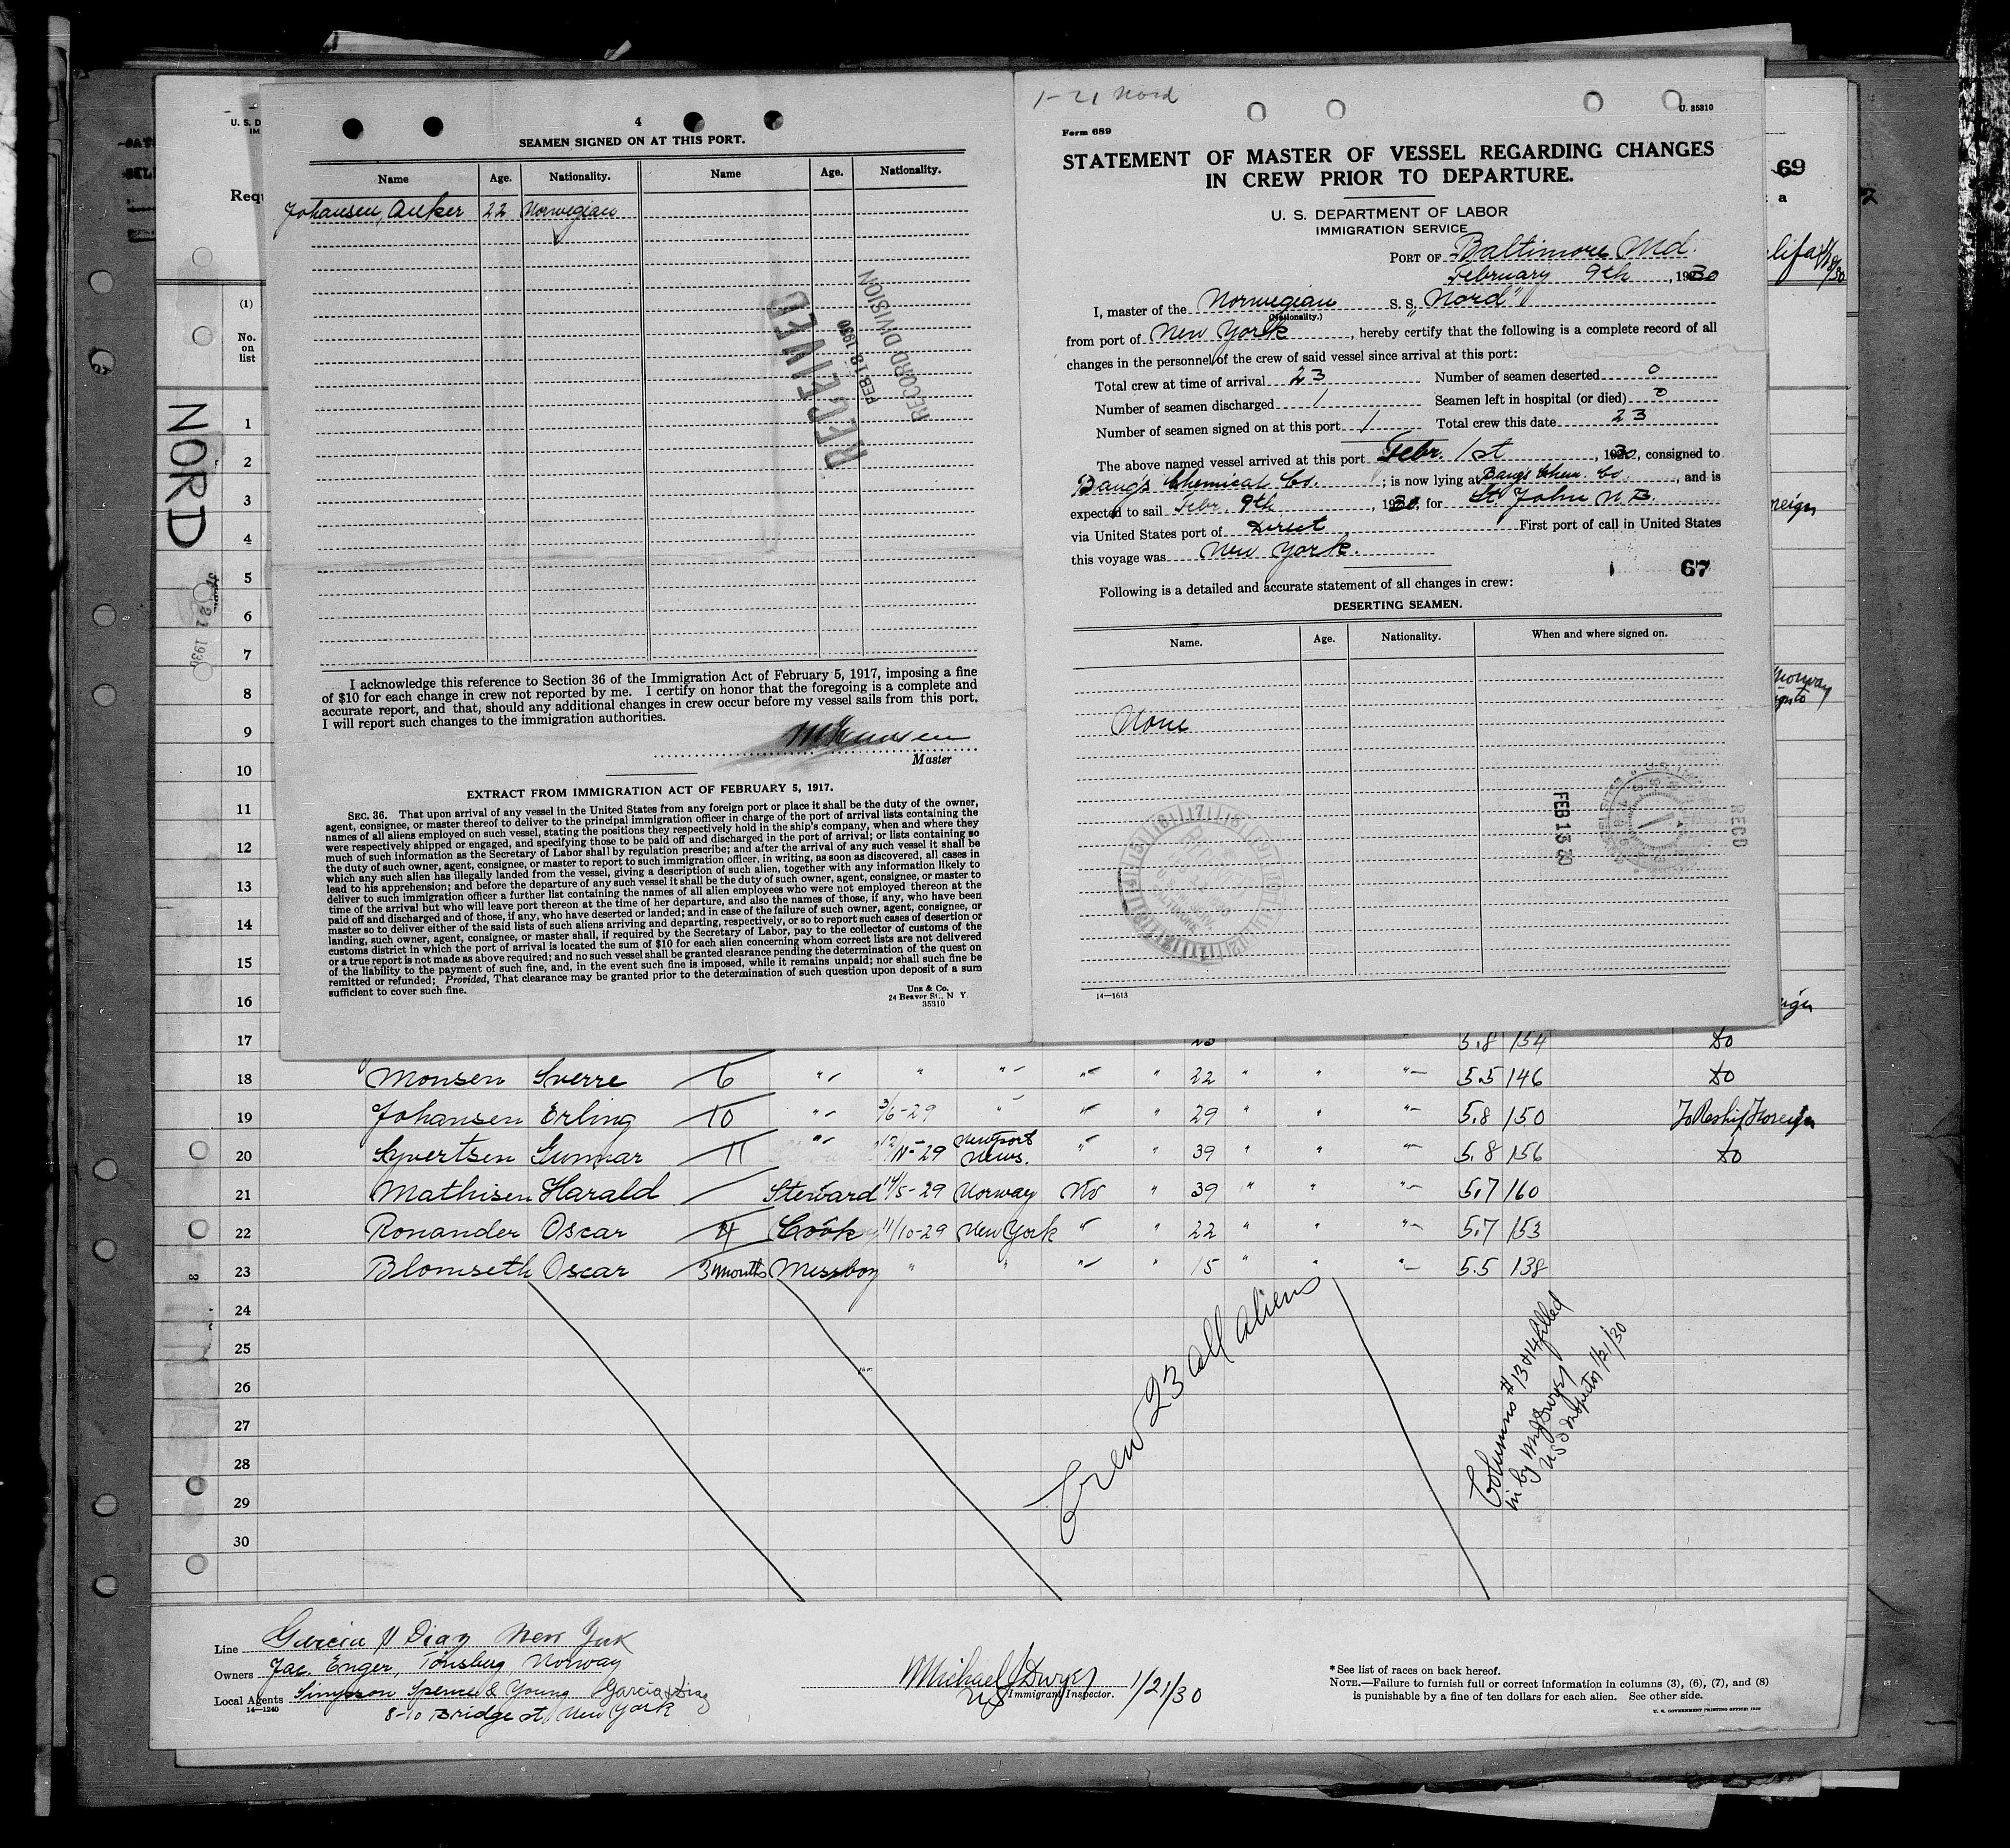 4
SEAMEN SIGNED ON AT THIS PORT.
Name Age. Nationality. Name Age. Nationality.
Johansen, Anker 22 Norwegian
RECEIVED
FEB 18 1930
RECORD DIVISION
I acknowledge this reference to Section 36 of the Immigration Act of February 5, 1917, imposing a fine
of $10 for each change in crew not reported by me. I certify on honor that the foregoing is a complete and
accurate report, and that, should any additional changes in crew occur before my vessel sails from this port,
I will report such changes to the immigration authorities.
Master
EXTRACT FROM IMMIGRATION ACT OF FEBRUARY 5, 1917.
SEC. 36. That upon arrival of any vessel in the United States from any foreign port or place it shall be the duty of the owner,
agent, consignee, or master thereof to deliver to the principal immigration officer in charge of the port of arrival lists containing the
names of all aliens employed on such vessel, stating the positions they respectively hold in the ship's company, when and where they
were respectively shipped or engaged, and specifying those to be paid off and discharged in the port of arrival; or lists containing so
much of such information as the Secretary of Labor shall by regulation prescribe; and after the arrival of any such vessel it shall be
the duty of such owner, agent, consignee, or master to report to such immigration officer, in writing, as soon as discovered, all cases in
which any such alien has illegally landed from the vessel, giving a description of such alien, together with any information likely to
lead to his apprehension; and before the departure of any such vessel it shall be the duty of such owner, agent, consignee, or master to
deliver to such immigration officer a further list containing the names of all alien employees who were not employed thereon at the
time of the arrival but who will leave port thereon at the time of her departure, and also the names of those, if any, who have been
paid off and discharged and of those, if any, who have deserted or landed; and in case of the failure of such owner, agent, consignee, or
master so to deliver either of the said lists of such aliens arriving and departing, respectively, or so to report such cases of desertion or
landing, such owner, agent, consignee, or master shall, if required by the Secretary of Labor, pay to the collector of customs of the
customs district in which the port of arrival is located the sum of $10 for each alien concerning whom correct lists are not delivered
or a true report is not made as above required; and no such vessel shall be granted clearance pending the determination of the quest on
of the liability to the payment of such fine, and, in the event such fine is imposed, while it remains unpaid; nor shall such fine be
remitted or refunded; Provided, That clearance may be granted prior to the determination of such question upon deposit of a sum
sufficient to cover such fine.
Unz & Co.
24 Beaver St., N Y.
35310
1-21 Nord
U. 35310
Form 689
STATEMENT OF MASTER OF VESSEL REGARDING CHANGES
IN CREW PRIOR TO DEPARTURE.
U. S. DEPARTMENT OF LABOR
IMMIGRATION SERVICE
PORT OF Baltimore Md.
February 9th, 1930
I, master of the Norwegian S. S. "Nord"
(Nationality.)
from port of New York, hereby certify that the following is a complete record of all
changes in the personnel of the crew of said vessel since arrival at this port:
Total crew at time of arrival 23 Number of seamen deserted 0
Number of seamen discharged 1 Seamen left in hospital (or died) 0
Number of seamen signed on at this port 1 Total crew this date 23
The above named vessel arrived at this port Febr. 1st, 1930, consigned to
Baugs Chemical Co.; is now lying at Baugs Chem. Co., and is
expected to sail Febr. 9th, 1930, for St John N.B.
via United States port of Direct First port of call in United States
this voyage was New York.
67
Following is a detailed and accurate statement of all changes in crew:
DESERTING SEAMEN.
Name. Age. Nationality. When and where signed on.
None
FEB 13 30
RECD
14—1613
69
a
U. S. D
IM
Requ
(1)
No.
on
list
NORD
1
2
3
4
5
6
7
8
9
10
11
12
13
14
15
16
17 5.8 154 do
18 Monsen Sverre 6 " " " " " 22 " " " 5.5 146 do
19 Johansen Erling 10 " 3/6-29 " " " 29 " " " 5.8 150 To Reship Foreign
20 Syvertsen Gunnar 11 " 12/11-29 Newport News. " " 39 " " " 5.8 156 do
21 Mathisen Harald Steward 14/5-29 Norway No " 39 " " " 5.7 160
22 Ronander Oscar 4 Cook 11/10-29 New York " " 22 " " " 5.7 153
23 Blomseth Oscar 3 months Messboy " " " " 15 " " " 5.5 138
24
25
26
27
28
29
30
Crew 23 all aliens
Columns #13 & 14 filled
in by M J Dwyer
U S Inspector 1/21/30
Line Garcia & Diaz New York
Owners Jac. Enger, Tönsberg, Norway
Local Agents Simpson Spence & Young Garcia & Diaz
14—1240
8-10 Bridge st, New York
Michael J Dwyer 1/21/30
US Immigrant Inspector.
* See list of races on back hereof.
NOTE.—Failure to furnish full or correct information in columns (3), (6), (7), and (8)
is punishable by a fine of ten dollars for each alien. See other side.
U. S. GOVERNMENT PRINTING OFFICE: 1929